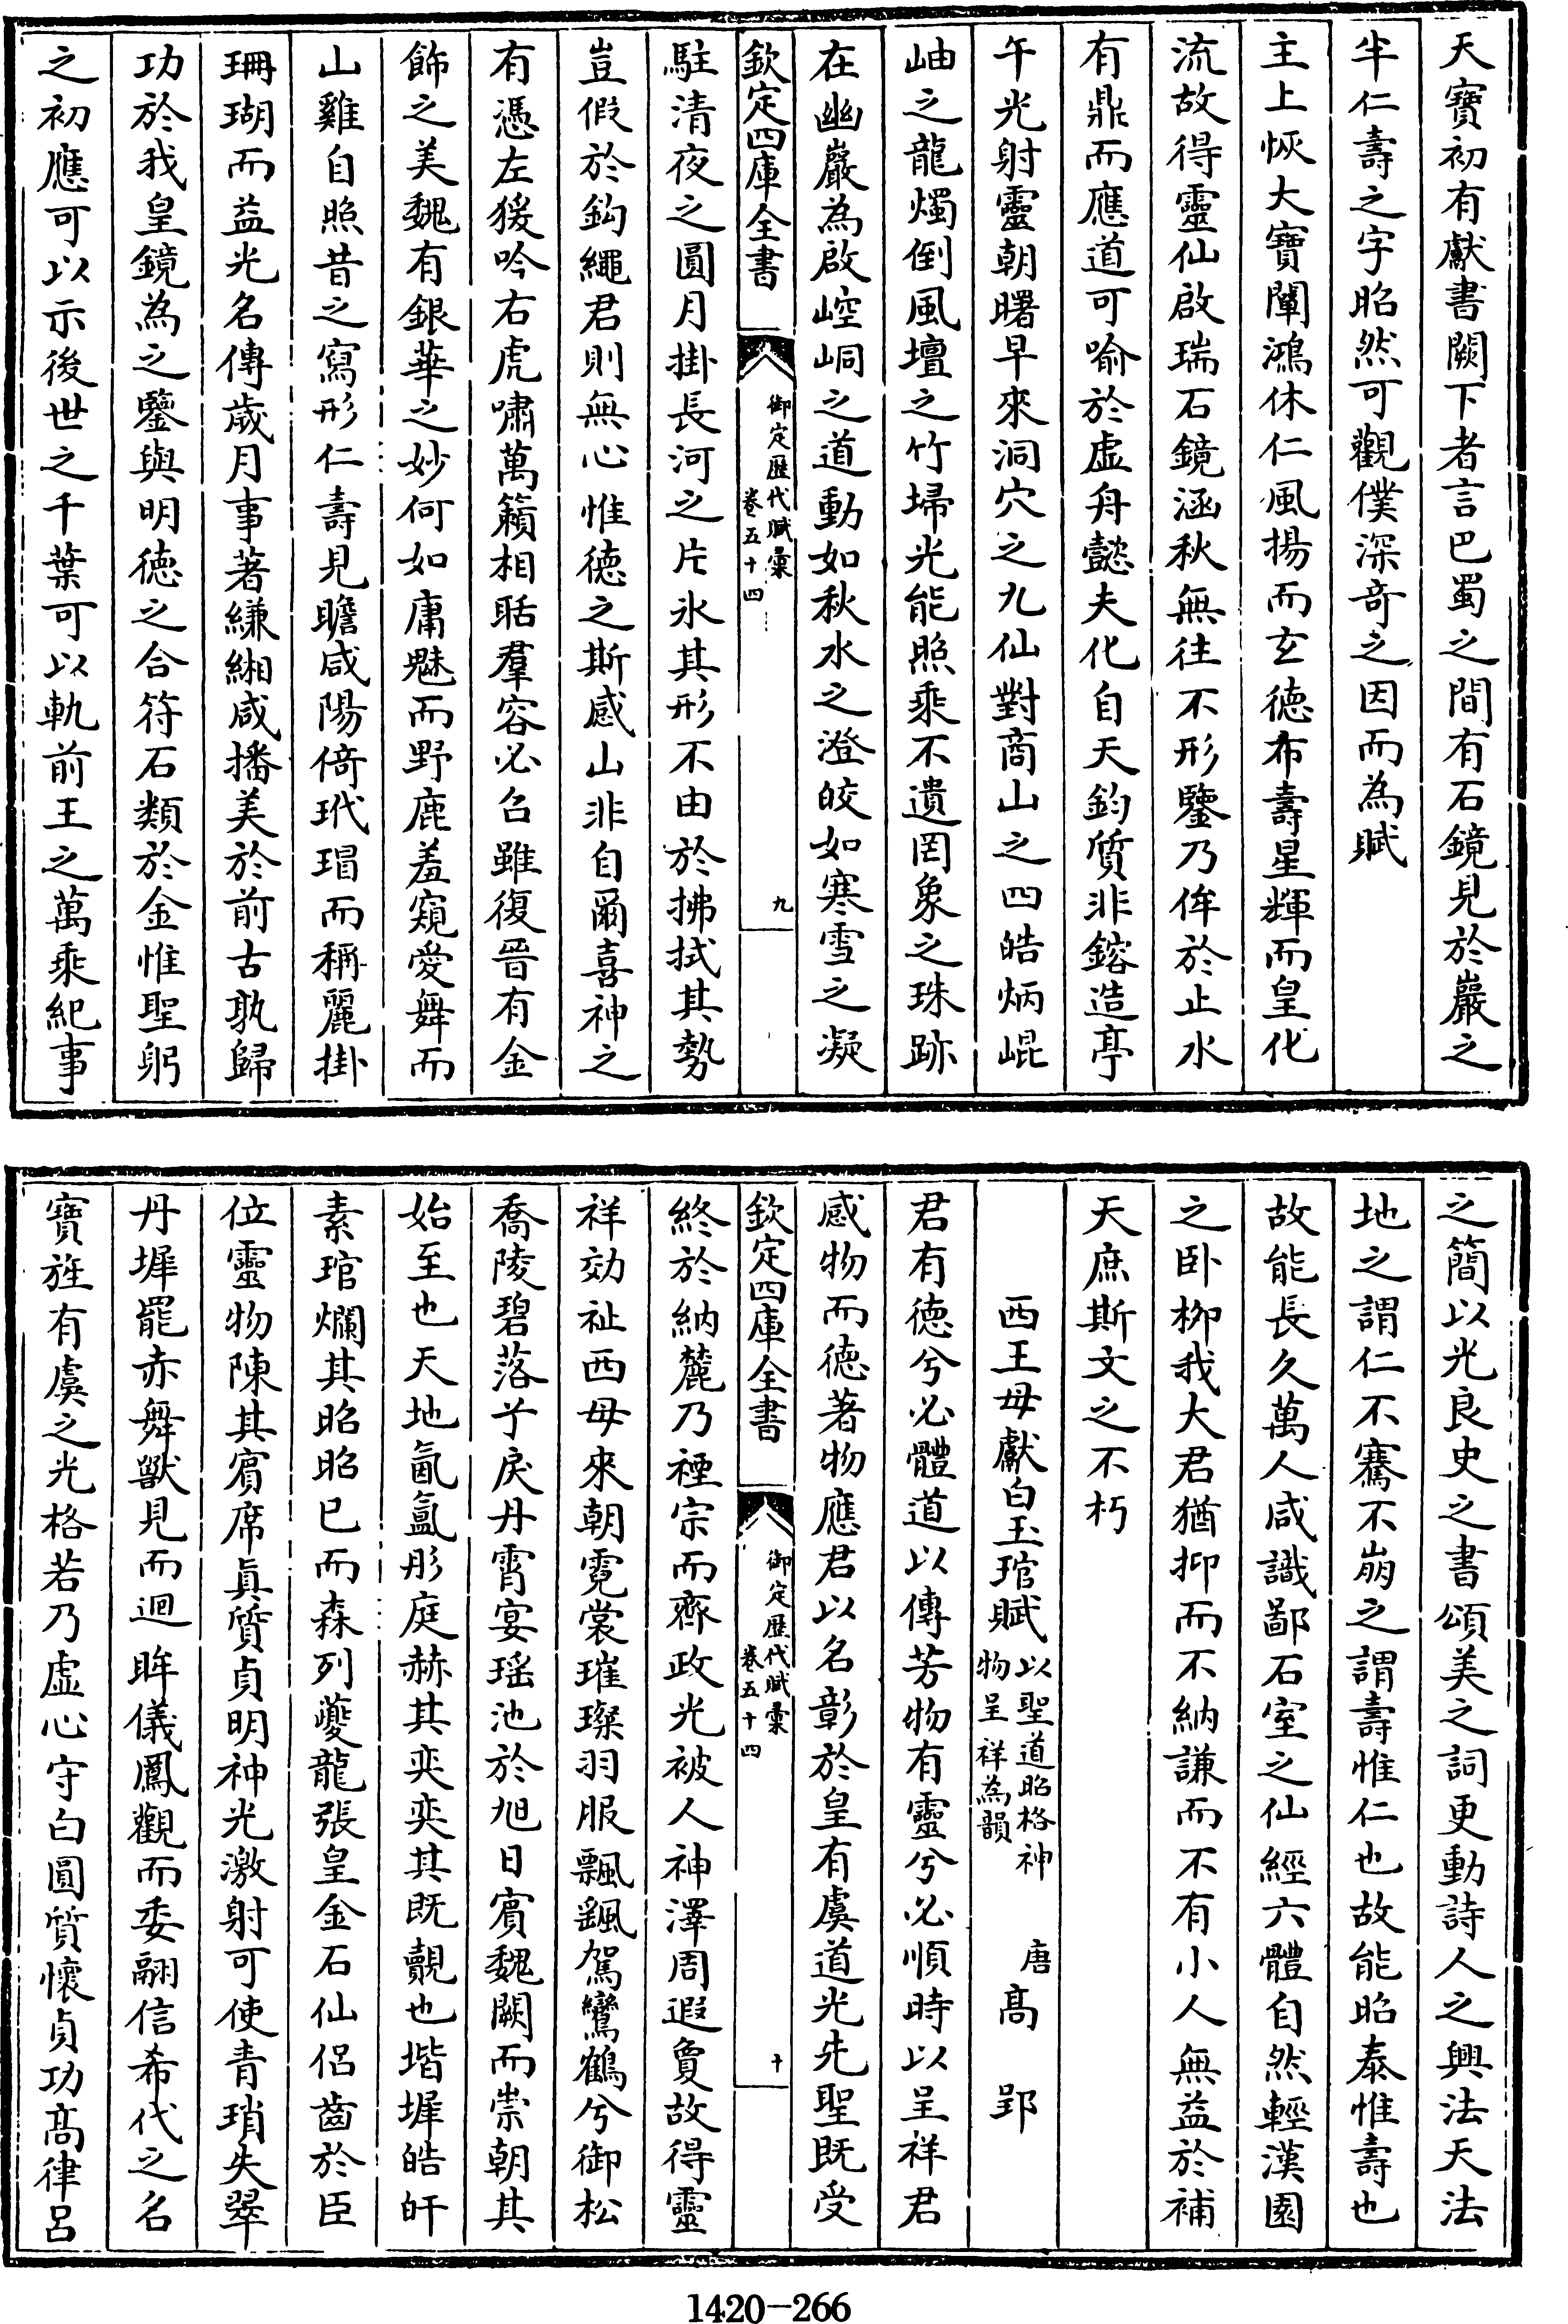 天寶初有獻書闕下者言巴蜀之間有石鏡見於巖之
半仁壽之字昭然可觀僕深奇之因而為賦
主上恢大寶闡鴻休仁風揚而玄德布壽星輝而皇化
流故得靈仙啟瑞石鏡涵秋無往不形鑒乃侔於止水
有鼎而應道可喻於虛舟懿夫化自天鈞質非鎔造亭
午光射靈朝曙早來洞穴之九仙對商山之四皓炳崐
岫之龍燭倒風壇之竹埽光能照乘不遺罔象之珠跡
在幽巖為啟崆峒之道動如秋水之澄皎如寒雪之凝
欽定四庫全書
御定歷代賦彙
卷五十四
九
駐清夜之圓月掛長河之片氷其形不由於拂拭其勢
豈假於鈎繩君則無心惟德之斯感山非自爾喜神之
有憑左猨吟右虎嘯萬籟相聒羣容必召雖復晉有金
飾之美魏有銀華之妙何如庸魅而野鹿羞窺愛舞而
山雞自照昔之寫形仁壽見瞻咸陽倚玳瑁而稱麗掛
珊瑚而益光名傳歲月事著縑緗咸播美於前古孰歸
功於我皇鏡為之鑒與明德之合符石類於金惟聖躬
之初應可以示後世之千葉可以軌前王之萬乘紀事
之簡以光良史之書頌美之詞更動詩人之興法天法
地之謂仁不騫不崩之謂壽惟仁也故能昭泰惟壽也
故能長久萬人咸識鄙石室之仙經六體自然輕漢園
之卧柳我大君猶抑而不納謙而不有小人無益於補
天庶斯文之不朽
西王母獻白玉琯賦
以聖道昭格神
物呈祥為韻
唐
高郢
君有德兮必體道以傳芳物有靈兮必順時以呈祥君
感物而德著物應君以名彰於皇有虞道光先聖既受
欽定四庫全書
御定歷代賦彙
卷五十四
十
終於納麓乃禋宗而齊政光被人神澤周遐敻故得靈
祥効祉西母來朝霓裳璀璨羽服飄颻駕鸞鶴兮御松
喬陵碧落兮戾丹霄宴瑶池於旭日賓魏闕而崇朝其
始至也天地氤氳彤庭赫其奕奕其既覿也堦墀皓旰
素琯爛其昭昭巳而森列夔龍張皇金石仙侶齒於臣
位靈物陳其賓席真質貞明神光激射可使青瑣失翠
丹墀罷赤舞獸見而迴眸儀鳳觀而委翮信希代之名
寳旌有虞之光格若乃虛心守白圓質懷貞功高律呂
1420-266